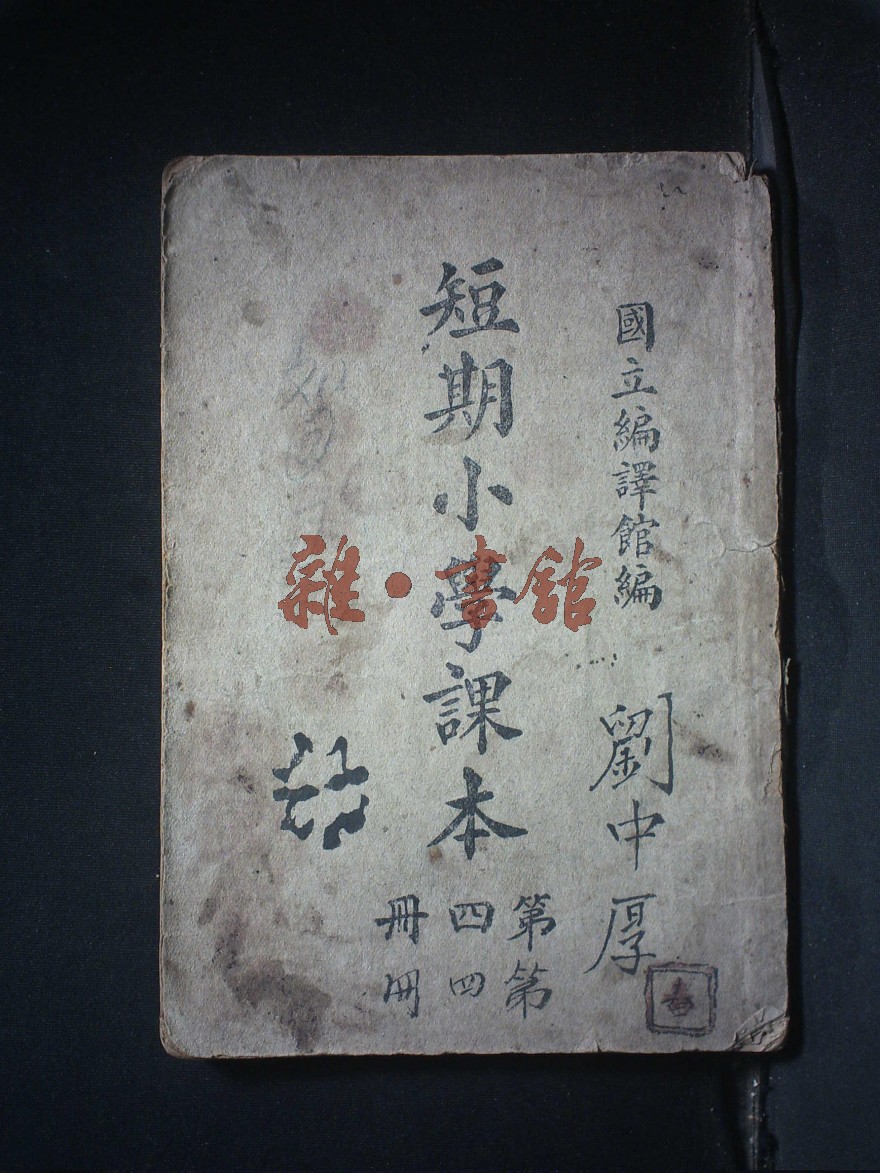 國立編譯館編
劉中厚
短期小學課本
第四冊
第四冊
雜·書館